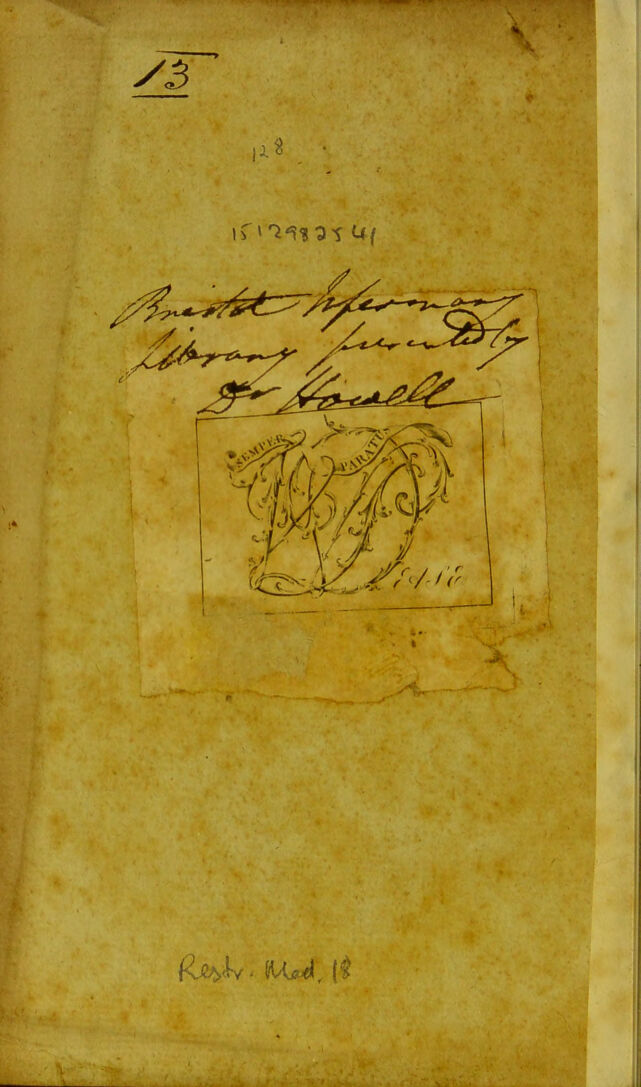 13
128
1512982541
Bristol Infirmary
Library presented by
Dr Howell
SEMPER PARATUS
EASE
Restr. Med. 18